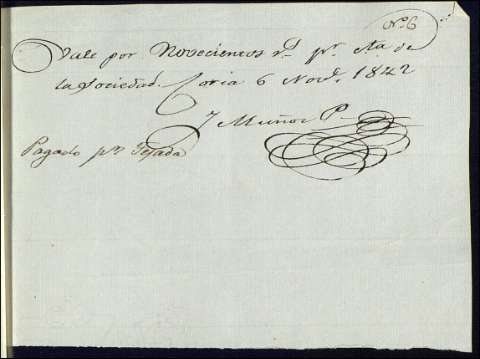 Nº 6
Vale por Novecientos rˢ pʳ cta de
la Sociedad. Coria 6 Novᵉ. 1842
J Muñoz P
Pagado pʳ Tejada